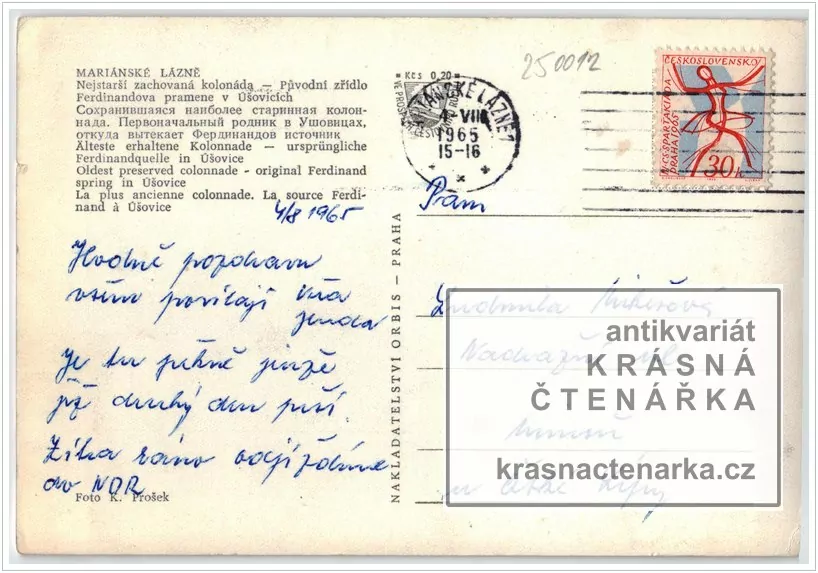 MARIÁNSKÉ LÁZNĚ
Nejstarší zachovaná kolonáda — Původní zřídlo
Ferdinandova pramene v Úšovicích
Сохранившаяся наиболее старинная колон-
нада. Первоначальный родник в Ушовицах,
откуда вытекает Фердинандов источник
Älteste erhaltene Kolonnade — ursprüngliche
Ferdinandquelle in Úšovice
Oldest preserved colonnade - original Ferdinand
spring in Úšovice
La plus ancienne colonnade. La source Ferdi-
nand à Úšovice
4/8 1965
Hodně pozdravu
všem posílají
Jenda
Je tu pěkně jenže
již druhý den prší.
Zítra ráno odjíždíme
do NDR
Foto K. Prošek
NAKLADATELSTVÍ ORBIS — PRAHA
Kčs 0,20
LÁZNĚ 1
4. VIII
1965
15-16
250012
ČESKOSLOVENSKO
SPARTAKIÁDA
PRAHA 1965
30h
Paní
Ludmila
antikvariát
KRÁSNÁ
ČTENÁŘKA
krasnactenarka.cz